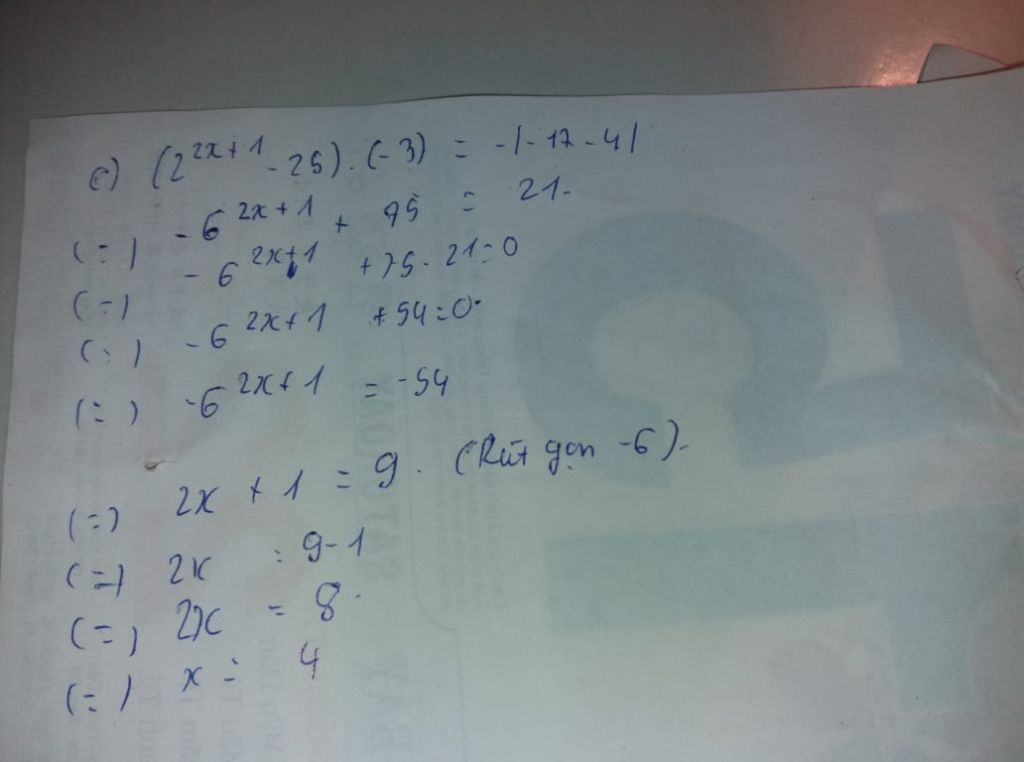 c) (2^{2x+1} - 25) . (-3) = -|-17-4|
(=) -6^{2x+1} + 75 = 21.
(=) -6^{2x+1} +75-21=0
(=) -6^{2x+1} +54=0.
(=) -6^{2x+1} = -54
(=) 2x + 1 = 9. (Rút gọn -6).
(=) 2x = 9-1
(=) 2x = 8.
(=) x = 4